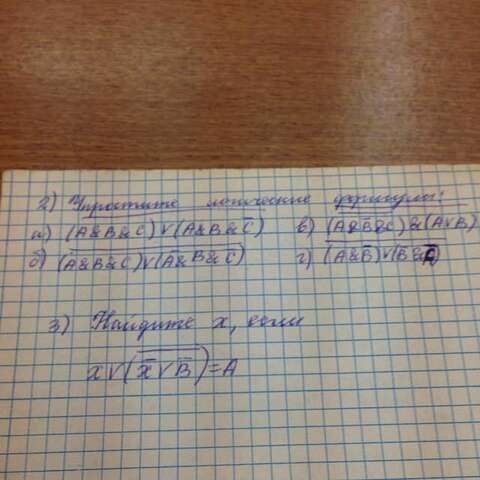 2) Упростите логические формулы:
а) (A&B&C)∨(A&B&C̅) в) (A&B̅&C)&(A∨B)
б) (A&B&C)∨(A&B&C̅) г) (A&B̅)∨(B̅&C)
3) Найдите x, если
x∨(x̅∨B̅)=A